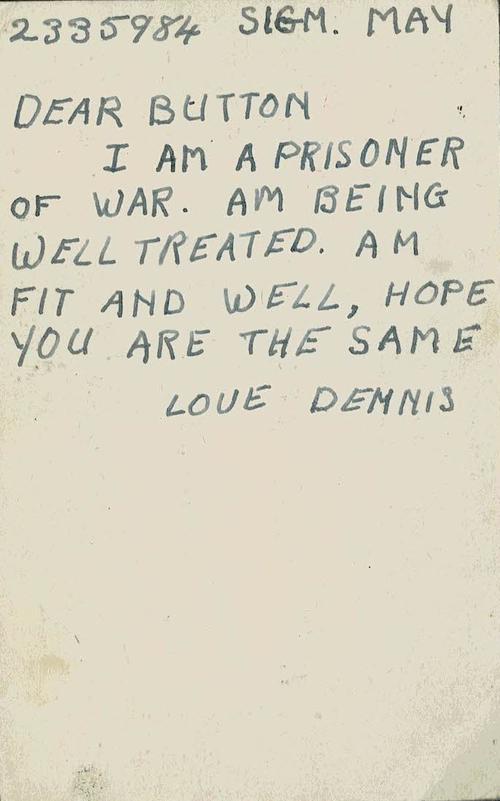 2335984 SIGM. MAY
DEAR BUTTON
I AM A PRISONER
OF WAR. AM BEING
WELL TREATED. AM
FIT AND WELL, HOPE
YOU ARE THE SAME
LOVE DENNIS